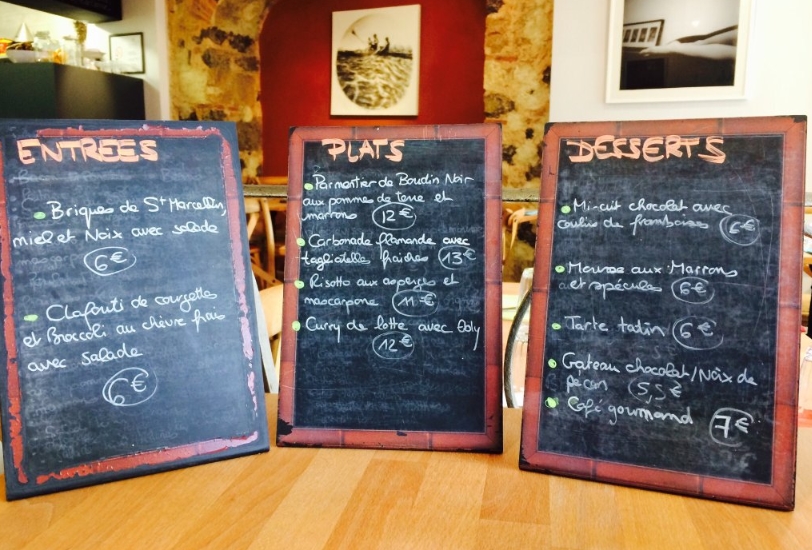 ENTREES
Briques de St Marcellin,
miel et Noix avec salade
6€
Clafouti de courgettes
et Broccoli au chèvre frais
avec salade
6€
PLATS
Parmentier de Boudin Noir
aux pommes de terre et
marrons 12€
Carbonade flamande avec
tagliatelles fraîches 13€
Risotto aux asperges et
mascarpone 11€
Curry de lotte avec
12€
DESSERTS
Mi-cuit chocolat avec
coulis de framboises 6€
Mousse aux Marrons
et spéculos 6€
Tarte tatin 6€
Gateau chocolat/Noix de
pecan 5,5€
Café gourmand 7€